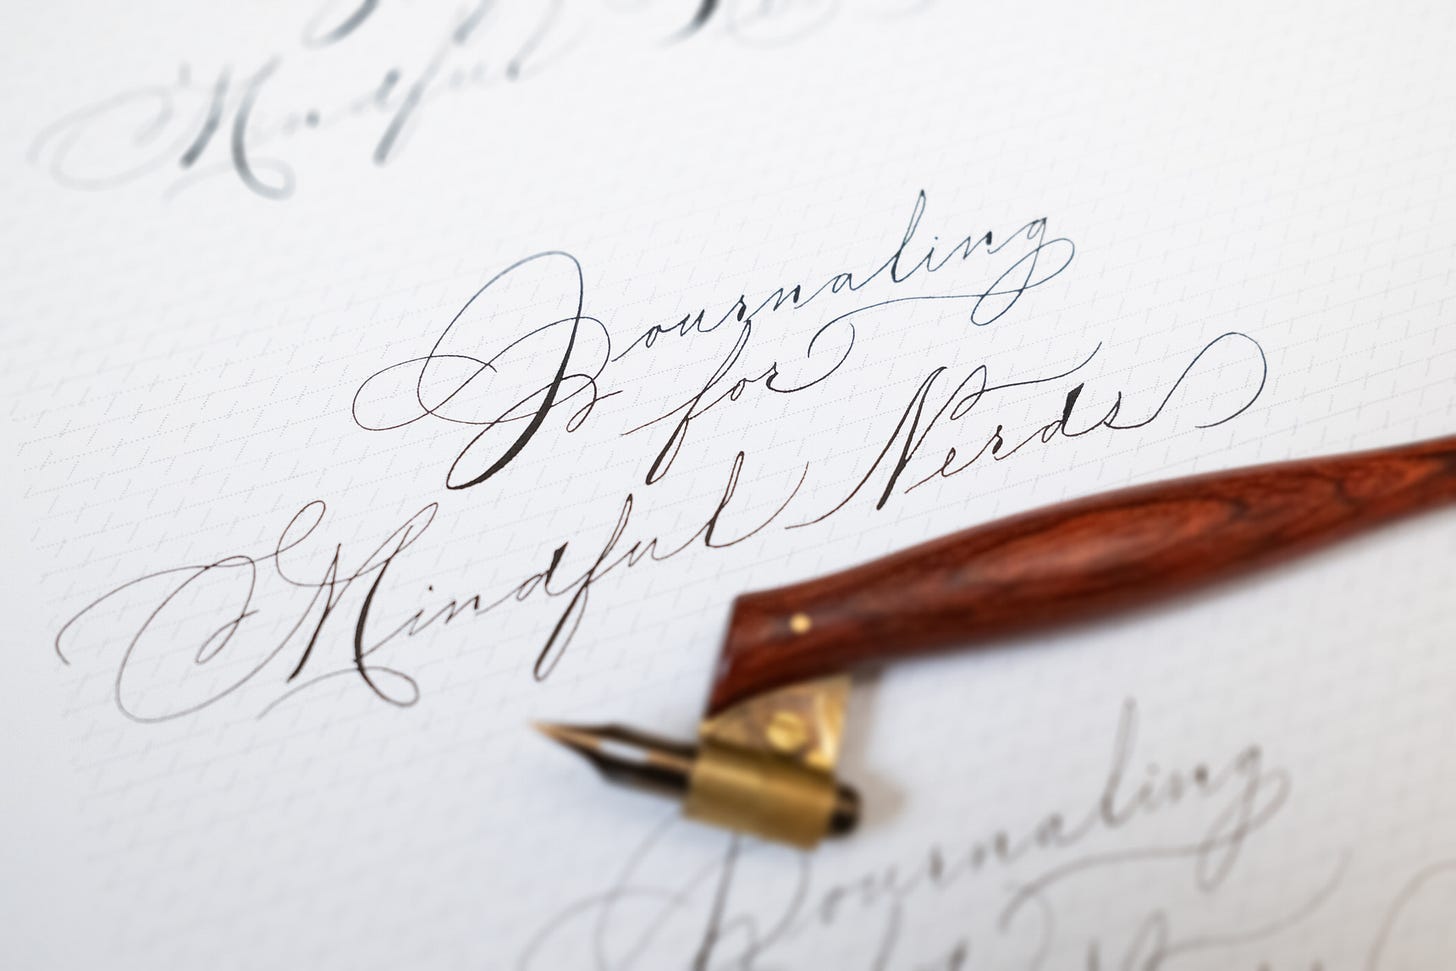 Mindful
Journaling
for
Mindful Nerds
Journaling